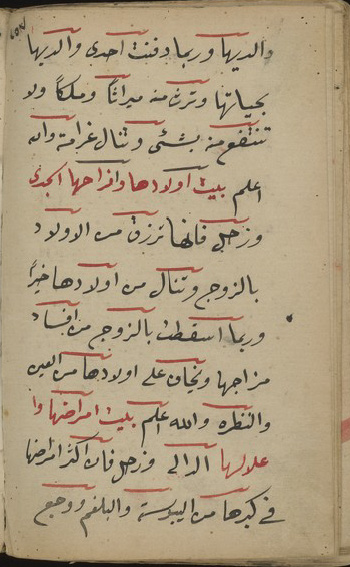 والديها وربما دفنت احدى والديها
بحياتها وترث منه ميراثًا وملكًا ولا
تنتفع منه بشئ وتنال غرامة والله
اعلم بيت اولادها وافراحها الجدى
وزحل فانها ترزق من الاولاد
بالزوج وتنال من اولادها خيرًا
وربما اسقطت بالزوج من افساد
مزاجها ويخاف على اولادها من العين
والنظره والله اعلم بيت امراضها وا
علالها الدالى وزحل فان اكثر امراضها
فى كبدها من اليبوسة والبلغم ووجع